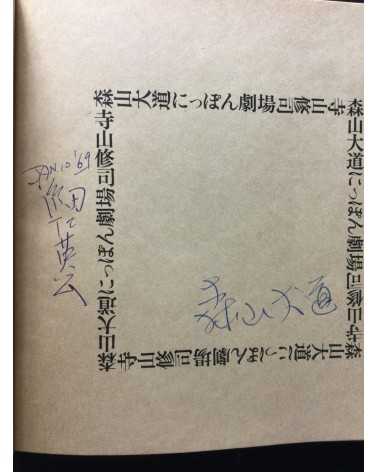 森山大道にっぽん劇場司修山寺
森山大道にっぽん劇場司修山寺
森山大道にっぽん劇場司修山寺
森山大道にっぽん劇場司修山寺
JAN. 10 '69
森山大道